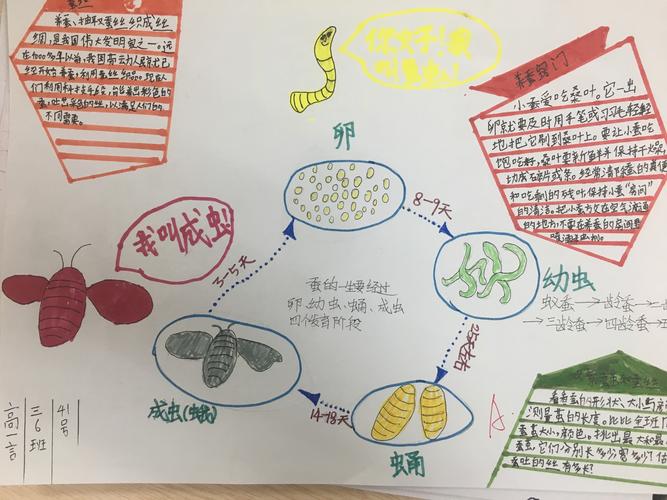 养蚕、抽取蚕丝织成丝
绸,是我国伟大发明之一。远
在4000多年以前,我国劳动人民就已
经开始养蚕,利用蚕丝织品。现在人
们利用科技手段,
蚕,吐出彩色的丝,以满足人们的
不同需要。
你好!我
叫
养蚕窍门
小蚕爱吃桑叶。它一出
卵就要及时用手笔或习习毛轻轻
地把它制到桑叶上。要让小蚕吃
饱吃好,桑叶要新鲜并保持干燥,
切成碎片或条。经常清除蚕的粪便
和吃剩的残叶,保持小蚕“房间”
的清洁。把小蚕放在空气流通
的地方,不要在养蚕的房间里
喷洒
卵
8-9天
我叫成虫!
3-5天
蚕的一生要经过
卵、幼虫、蛹、成虫
四个发育阶段
幼虫
蚁蚕→二龄蚕→
→三龄蚕→四龄蚕→
25天左右
成虫(蛾)
14-18天
蛹
A.
看看茧的形状、大小与
测量茧的长度。比比全班
蚕茧大小,颜色。挑出最大和最
茧,它们分别长多少?宽多少?估
蚕吐的丝有多长?
三6班
41号
高一言